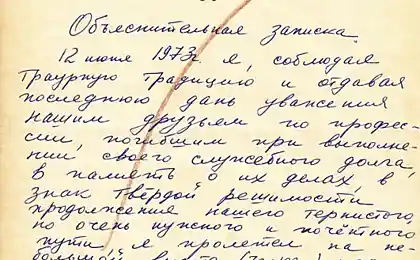 Объяснительная записка.
12 июля 1973г. я, соблюдая
траурную традицию и отдавая
последнюю дань уважения
нашим друзьям по профес-
сии, погибшим при выполне-
нии своего служебного долга,
в память о их делах, в
знак твёрдой решимости
продолжения нашего тернистого,
но очень нужного и почётного
пути, я пролетел на не-